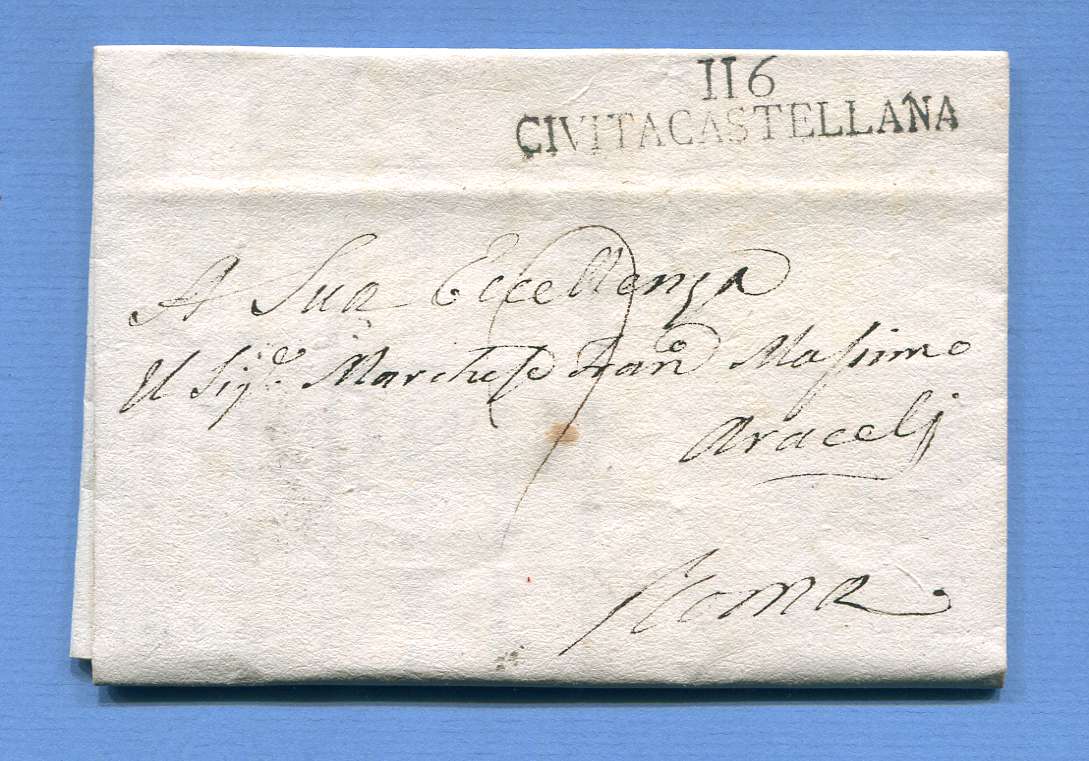 116
CIVITACASTELLANA
A Sua Eccellenza
Il Sig.e Marchese Franco Massimo
Araceli
Roma